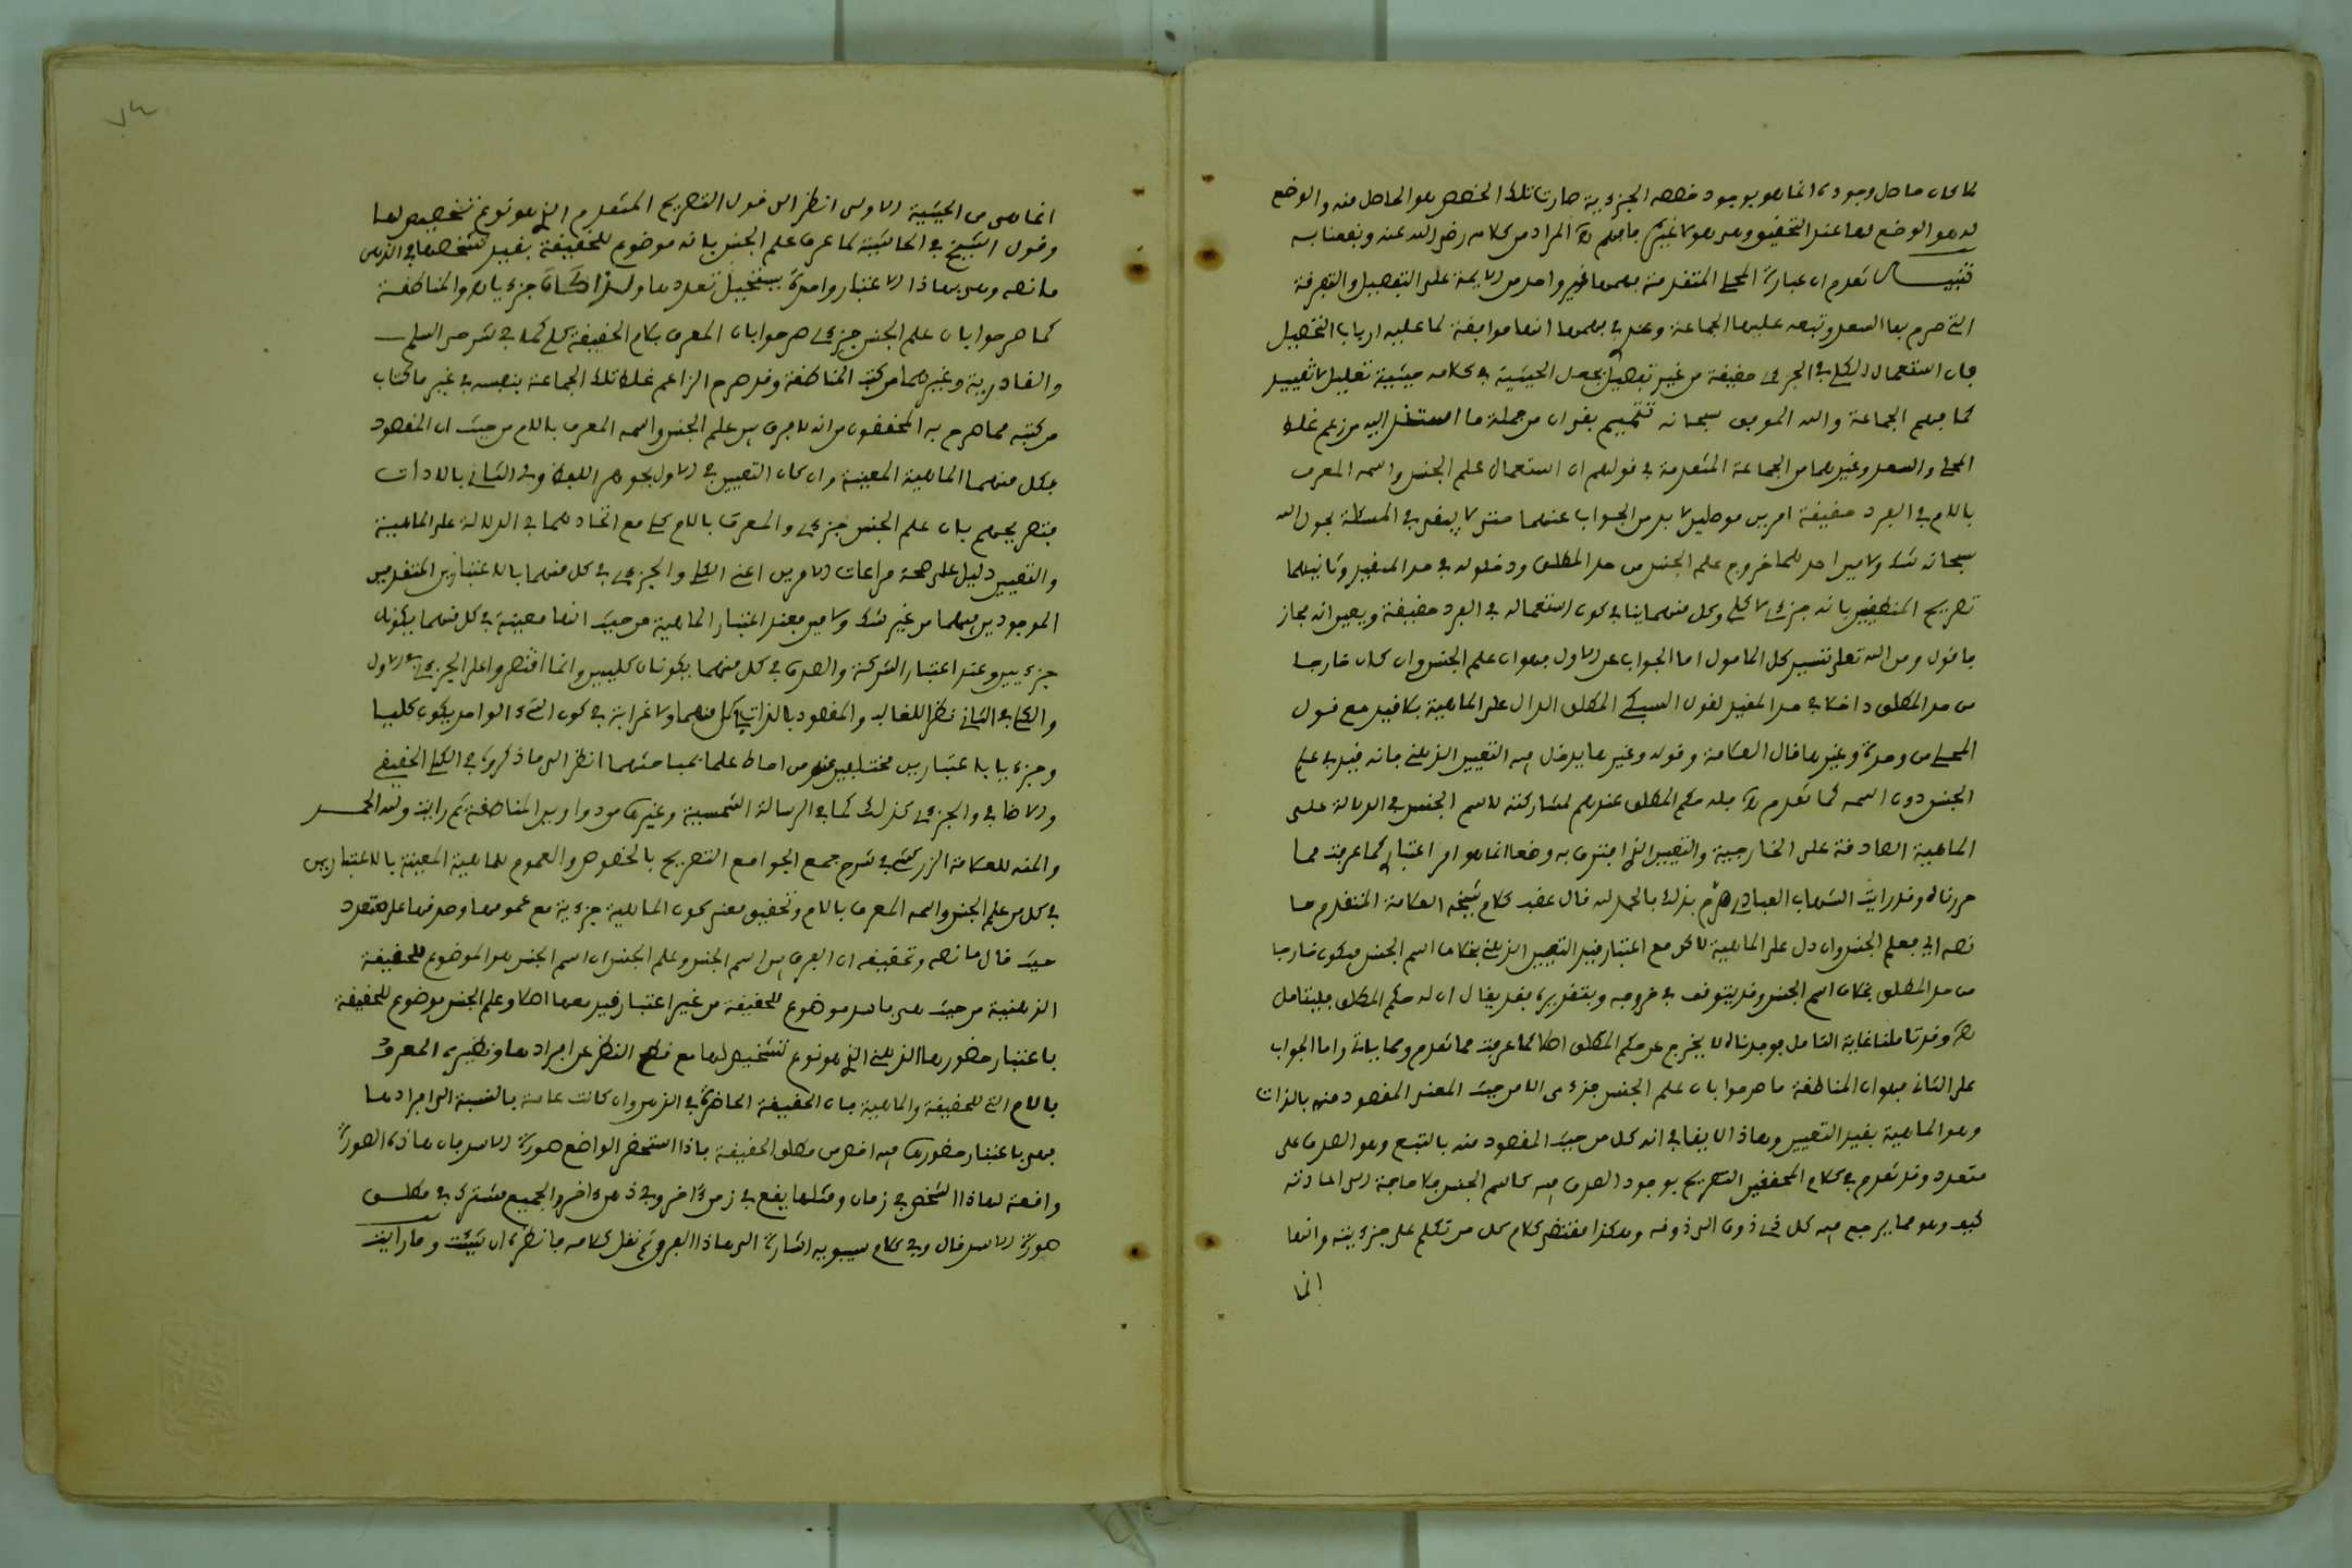 لما كان حاصل وجوده انما هو بوجود حصصه الجزءية صارت تلك الحصص هو الحاصل منه والوضع
له هو الوضع لها عند التحقيق وهي هو لا غيره فافهم لأن المراد من كلامه رضي الله عنه ونفعنا به
تنبيهان تقدم ان عبارة المحلي المتقدمة فهمها غير واحد من الايمة على التفصيل والتفرقة
التي صرح بها السعد وتبعه عليها الجماعة وعندي في فهمها انها موافقة لما عليه ارباب التحصيل
فان استعمال الكلي في الجزءي حقيقة من غير تفصيل بجعل الحيثية في كلامه حيثية تعليل لا تقييد
كما فهم الجماعة والله الموفق سبحانه تتميم بقي ان من جملة ما استند اليه من زعم غلط
المحلي والسعد وغيرهما من الجماعة المتقدمة في قولهم ان استعمال علم الجنس واسمه المعرف
باللام في الفرد حقيقة امرين موصلين لا بد من الجواب عنهما حتى لا يبقى في المسئلة بحول الله
سبحانه شك ولا مين احدهما خروج علم الجنس من حد المطلق ودخوله في حد المقيد وثانيهما
تصريح المنطقيين بانه جزءي لا كلي وكل منهما ينافي كون استعماله في الفرد حقيقة ويعين انه مجاز
فاقول ومن الله تعلى تيسير كل المامول اما الجواب عن الاول فهو ان علم الجنس وان كان خارجا
من حد المطلق داخلا في حد المقيد لقول السبكي المطلق الدال على الماهية بلا قيد مع قول
المحلي من وحدة وغيرها قال العلامة وقوله وغيرها يدخل فيه التعيين الذهني فانه قيد في علم
الجنس دون اسمه كما تقدم لأن فله حكم المطلق عندهم لمشاركته لاسم الجنس في الدلالة على
الماهية الصادقة على الخارجية والتعيين الذي افترق به وضعا انما هو امر اعتباري كما عرفت مما
حررناه وقد رايت الشهاب العبادي صرح بذلك والحمد لله قال عقب كلام شيخه العلامة المتقدم ما
نصه اي فعلم الجنس وان دل على الماهية لاكن مع اعتبار قيد التعيين الذهني بخلاف اسم الجنس فيكون خارجا
من حد المطلق بخلاف اسم الجنس وقد يتوقف في خروجه وبتقديره فقد يقال ان له حكم المطلق فليتامل
لأن وقد تاملنا غاية التامل فوجدناه لا يخرج عن حكم المطلق اصلا كما عرفت مما تقدم ومما ياتي واما الجواب
على الثاني فهو ان المناطقة ما صرحوا بان علم الجنس جزءي الا من حيث المعنى المقصود منه بالذات
وهو الماهية بقيد التعيين وهاذا لا ينافي انه كلي من حيث المقصود منه بالتبع وهو الصدق على
متعدد وقد تقدم في كلام المحققين التصريح بوجود الصدق فيه كاسم الجنس بلا حاجة الى اعادته
كيف وهو مما يرجع فيه كل ذي ذوق الى ذوقه وهكذا مقتضى كلام كل من تكلم على جزءيته وانها
انما
٧٤
انما هي من الحيثية الاولى انظر الى قول التصريح المتقدم الذي هو نوع تشخيص لها
وقول الشيخ في الحاشية لما عرف علم الجنس بانه موضوع للحقيقة بقيد تشخصها في الذهن
ما نصه وهي بهاذا الاعتبار واحدة يستحيل تعددها ولذا كان جزءيا لأن والمناطقة
كما صرحوا بان علم الجنس جزءي صرحوا بان المعرف بلام الحقيقة كلي كما في شرحي السلم
والقادرية وغيرهما من كتب المناطقة وقد صرح الزاعم غلط تلك الجماعة بنفسه في غير ما كتاب
من كتبه مما صرح به المحققون من انه لا فرق بين علم الجنس واسمه المعرف باللام من حيث ان المقصود
بكل منهما الماهية المعينة وان كان التعيين في الاول بجوهر اللفظ وفي الثاني بالاداة
فتصريحهم بان علم الجنس جزءي والمعرف باللام كلي مع اتحادهما في الدلالة على الماهية
والتعيين دليل على صحة مراعات الامرين اعني الكلي والجزءي في كل منهما بالاعتبارين المتقدمين
الموجودين فيهما من غير شك ولا مين فعند اعتبار الماهية من حيث انها معينة في كل منهما يكونان
جزءيين وعند اعتبار الشركة والصدق في كل منهما يكونان كليين وانما اقتصروا على الجزءي في الاول
والكلي في الثاني نظرا للغالب والمقصود بالذات في كل منهما ولا غرابة في كون الشيء الواحد يكون كليا
وجزءيا باعتبارين مختلفين عند من احاط علما بمباحثهما انظر الى ما ذكروه في الكلي الحقيقي
والاضافي والجزءي كذلك كما في الرسالة الشمسية وغيرها من دواوين المناطقة ثم رايت ولله الحمد
والمنه للعلامة الزركشي في شرح جمع الجوامع التصريح بالخصوص والعموم للماهية المعينة بالاعتبارين
في كل من علم الجنس واسمه المعرف باللام وتحقيق معنى كون الماهية جزءية مع عمومها وصدقها على متعدد
حيث قال ما نصه وتحقيقه ان الفرق بين اسم الجنس وعلم الجنس ان اسم الجنس هو الموضوع للحقيقة
الذهنية من حيث هي فاسد موضوع للحقيقة من غير اعتبار قيد معها اصلا وعلم الجنس موضوع للحقيقة
باعتبار حضورها الذهني الذي هو نوع تشخيص لها مع قطع النظر عن افرادها ونظيره المعرف
باللام التي للحقيقة والماهية فان الحقيقة الحاضرة في الذهن وان كانت عامة بالنسبة الى افرادها
فهي باعتبار حضورها فيه اخص من مطلق الحقيقة فاذا استحضر الواضع صورة الاسد فان هاذه الصورة
واقعة لهاذا الشخص في زمان ومثلها يقع في زمن اخر وفي ذهن اخر والجميع مشترك في مطلق
صورة الاسد قال وفي كلام سيبويه اشارة الى هاذا الفرق ثم نقل كلامه فانظره ان شئت وما رايت